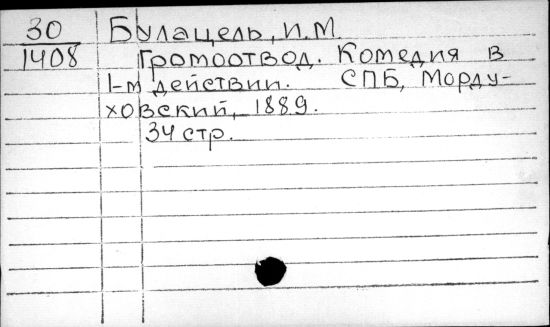 30 Булацель, И.М.
1408 Громоотвод. Комедия в
1-м действии. СПБ, Морду-
ховский, 1889.
34 стр.